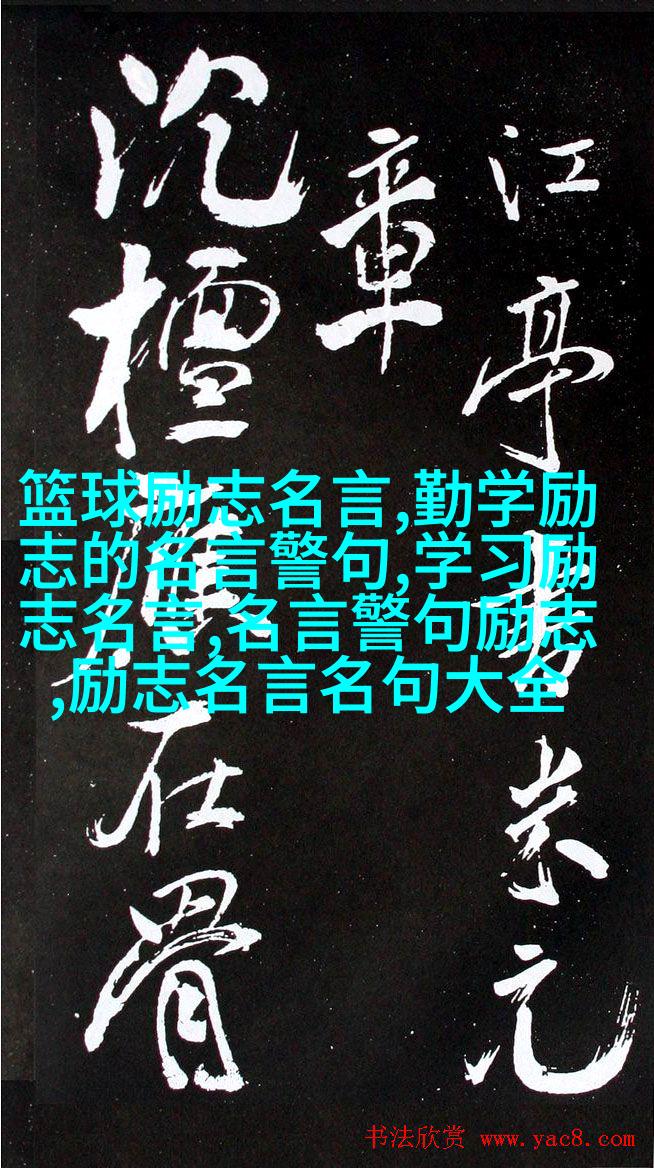 江亭米元
章
沉檀在骨
篮球励志名言,勤学励
志的名言警句,学习励
志名言,名言警句励志
,励志名言名句大全
书法欣赏 www.yac8.com